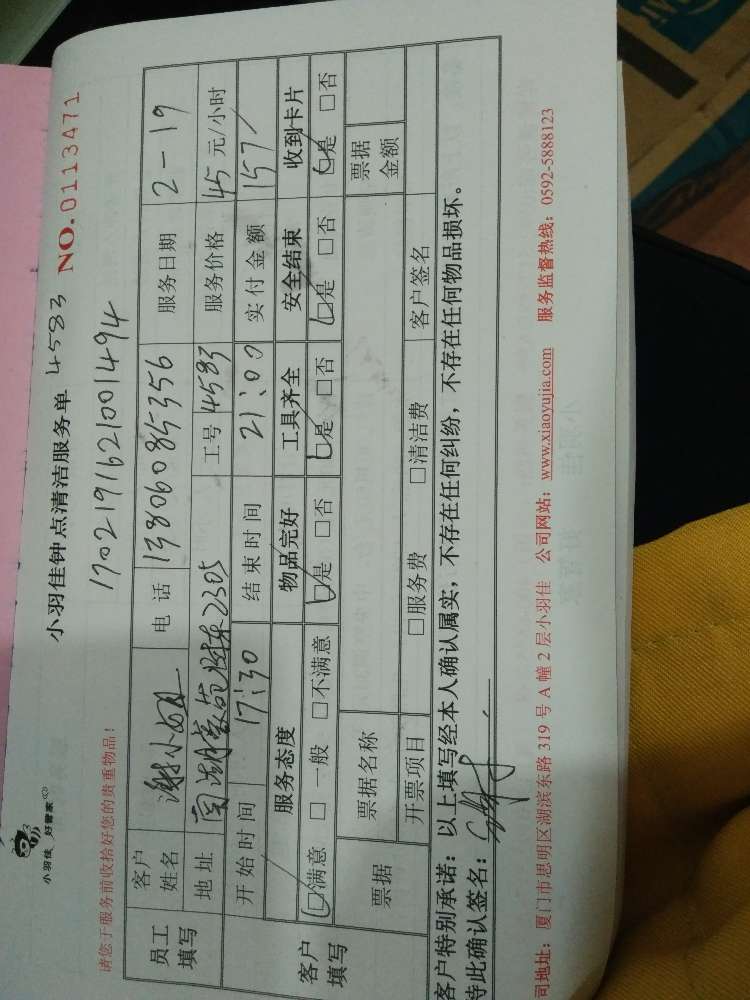 小羽佳 好管家
小羽佳钟点清洁服务单 4583 NO.0113471
1702191621001494
请您于服务前收拾好您的贵重物品!
员工填写 客户姓名 谢小姐 电话 13806085356 服务日期 2-19
地址 南湖豪苑 2305 工号 4583 服务价格 45 元/小时
开始时间 17:30 结束时间 21:00 实付金额 157
客户填写 服务态度 物品完好 工具齐全 安全结束 收到卡片
□满意 □ 一般 □不满意 □是 □否 □是 □否 □是 □否 □是 □否
票据 票据名称 票据金额
开票项目 □服务费 □清洁费 客户签名
客户特别承诺:以上填写经本人确认属实,不存在任何纠纷,不存在任何物品损坏。
特此确认签名:
司地址:厦门市思明区湖滨东路 319 号 A 幢 2 层小羽佳 公司网站:www.xiaoyujia.com 服务监督热线:0592-5888123